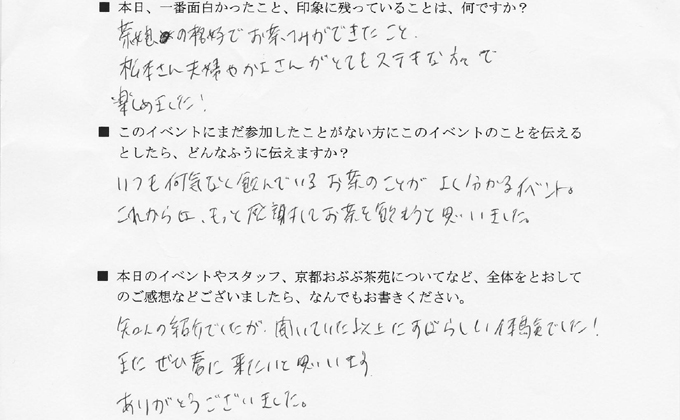 ■ 本日、一番面白かったこと、印象に残っていることは、何ですか？
茶娘の格好でお茶つみができたこと。
松本さん夫婦や さんがとてもステキな方で
楽しめました！
■ このイベントにまだ参加したことがない方にこのイベントのことを伝える
としたら、どんなふうに伝えますか？
いつも何気なく飲んでいるお茶のことがよく分かるイベント。
これからは、もっと感謝してお茶を飲もうと思いました。
■ 本日のイベントやスタッフ、京都おぶぶ茶苑についてなど、全体をとおして
のご感想などございましたら、なんでもお書きください。
知人の紹介でしたが、聞いていた以上にすばらしい体験でした！
また ぜひ春に来たいと思いいます
ありがとうございました。